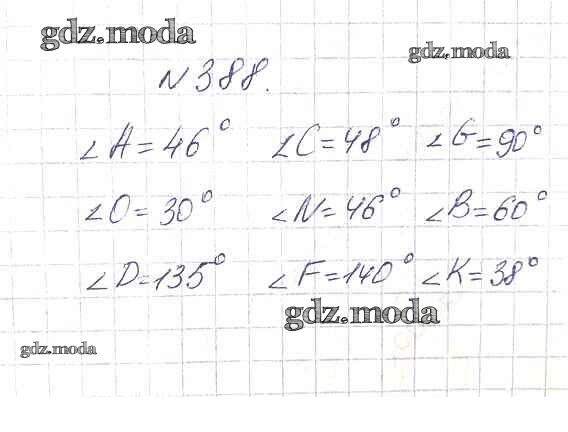 gdz.moda
gdz.moda
N 388.
∠A = 46° ∠C = 48° ∠G = 90°
∠O = 30° ∠N = 46° ∠B = 60°
∠D = 135° ∠F = 140° ∠K = 38°
gdz.moda
gdz.moda